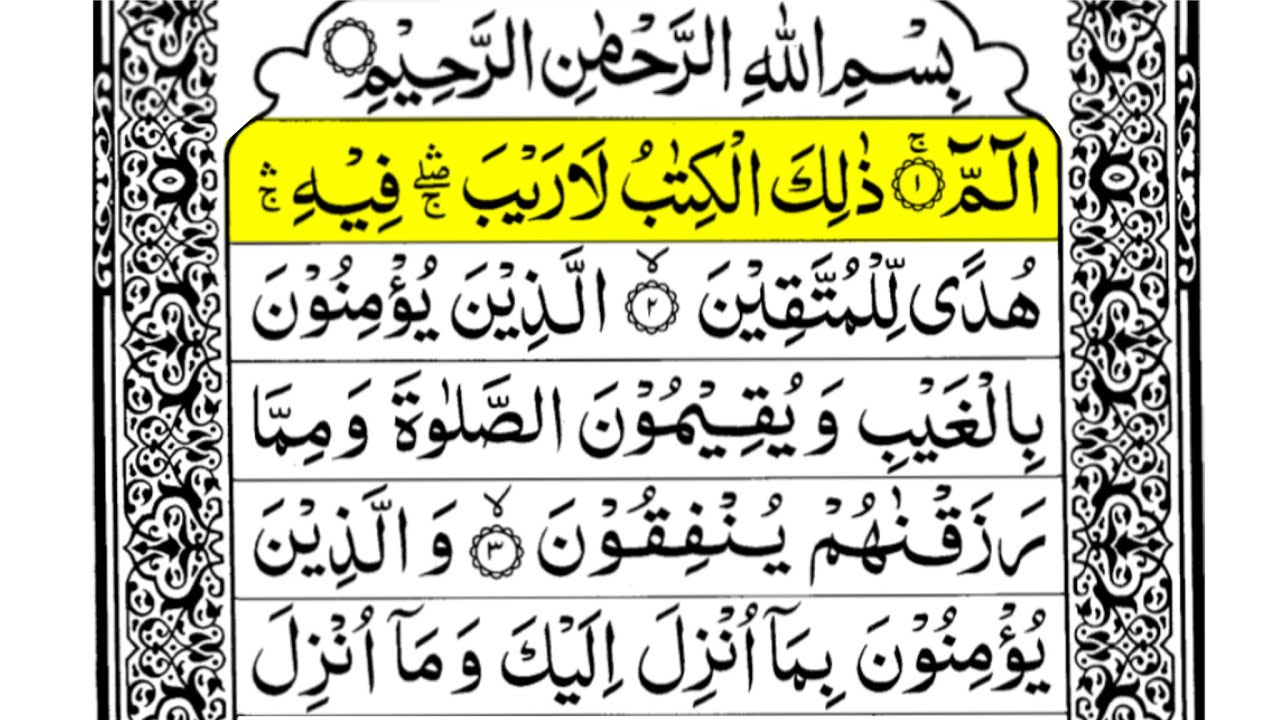 بِسْمِ اللهِ الرَّحْمٰنِ الرَّحِيْمِ
الٓمّٓ ۚ ﴿١﴾ ذٰلِكَ الْكِتٰبُ لَا رَيْبَ ۛۖۚ فِيْهِ ۛۚ
هُدًى لِّلْمُتَّقِيْنَ ۙ ﴿٢﴾ الَّذِيْنَ يُؤْمِنُوْنَ
بِالْغَيْبِ وَ يُقِيْمُوْنَ الصَّلٰوةَ وَ مِمَّا
رَزَقْنٰهُمْ يُنْفِقُوْنَ ۙ ﴿٣﴾ وَ الَّذِيْنَ
يُؤْمِنُوْنَ بِمَآ اُنْزِلَ اِلَيْكَ وَ مَآ اُنْزِلَ